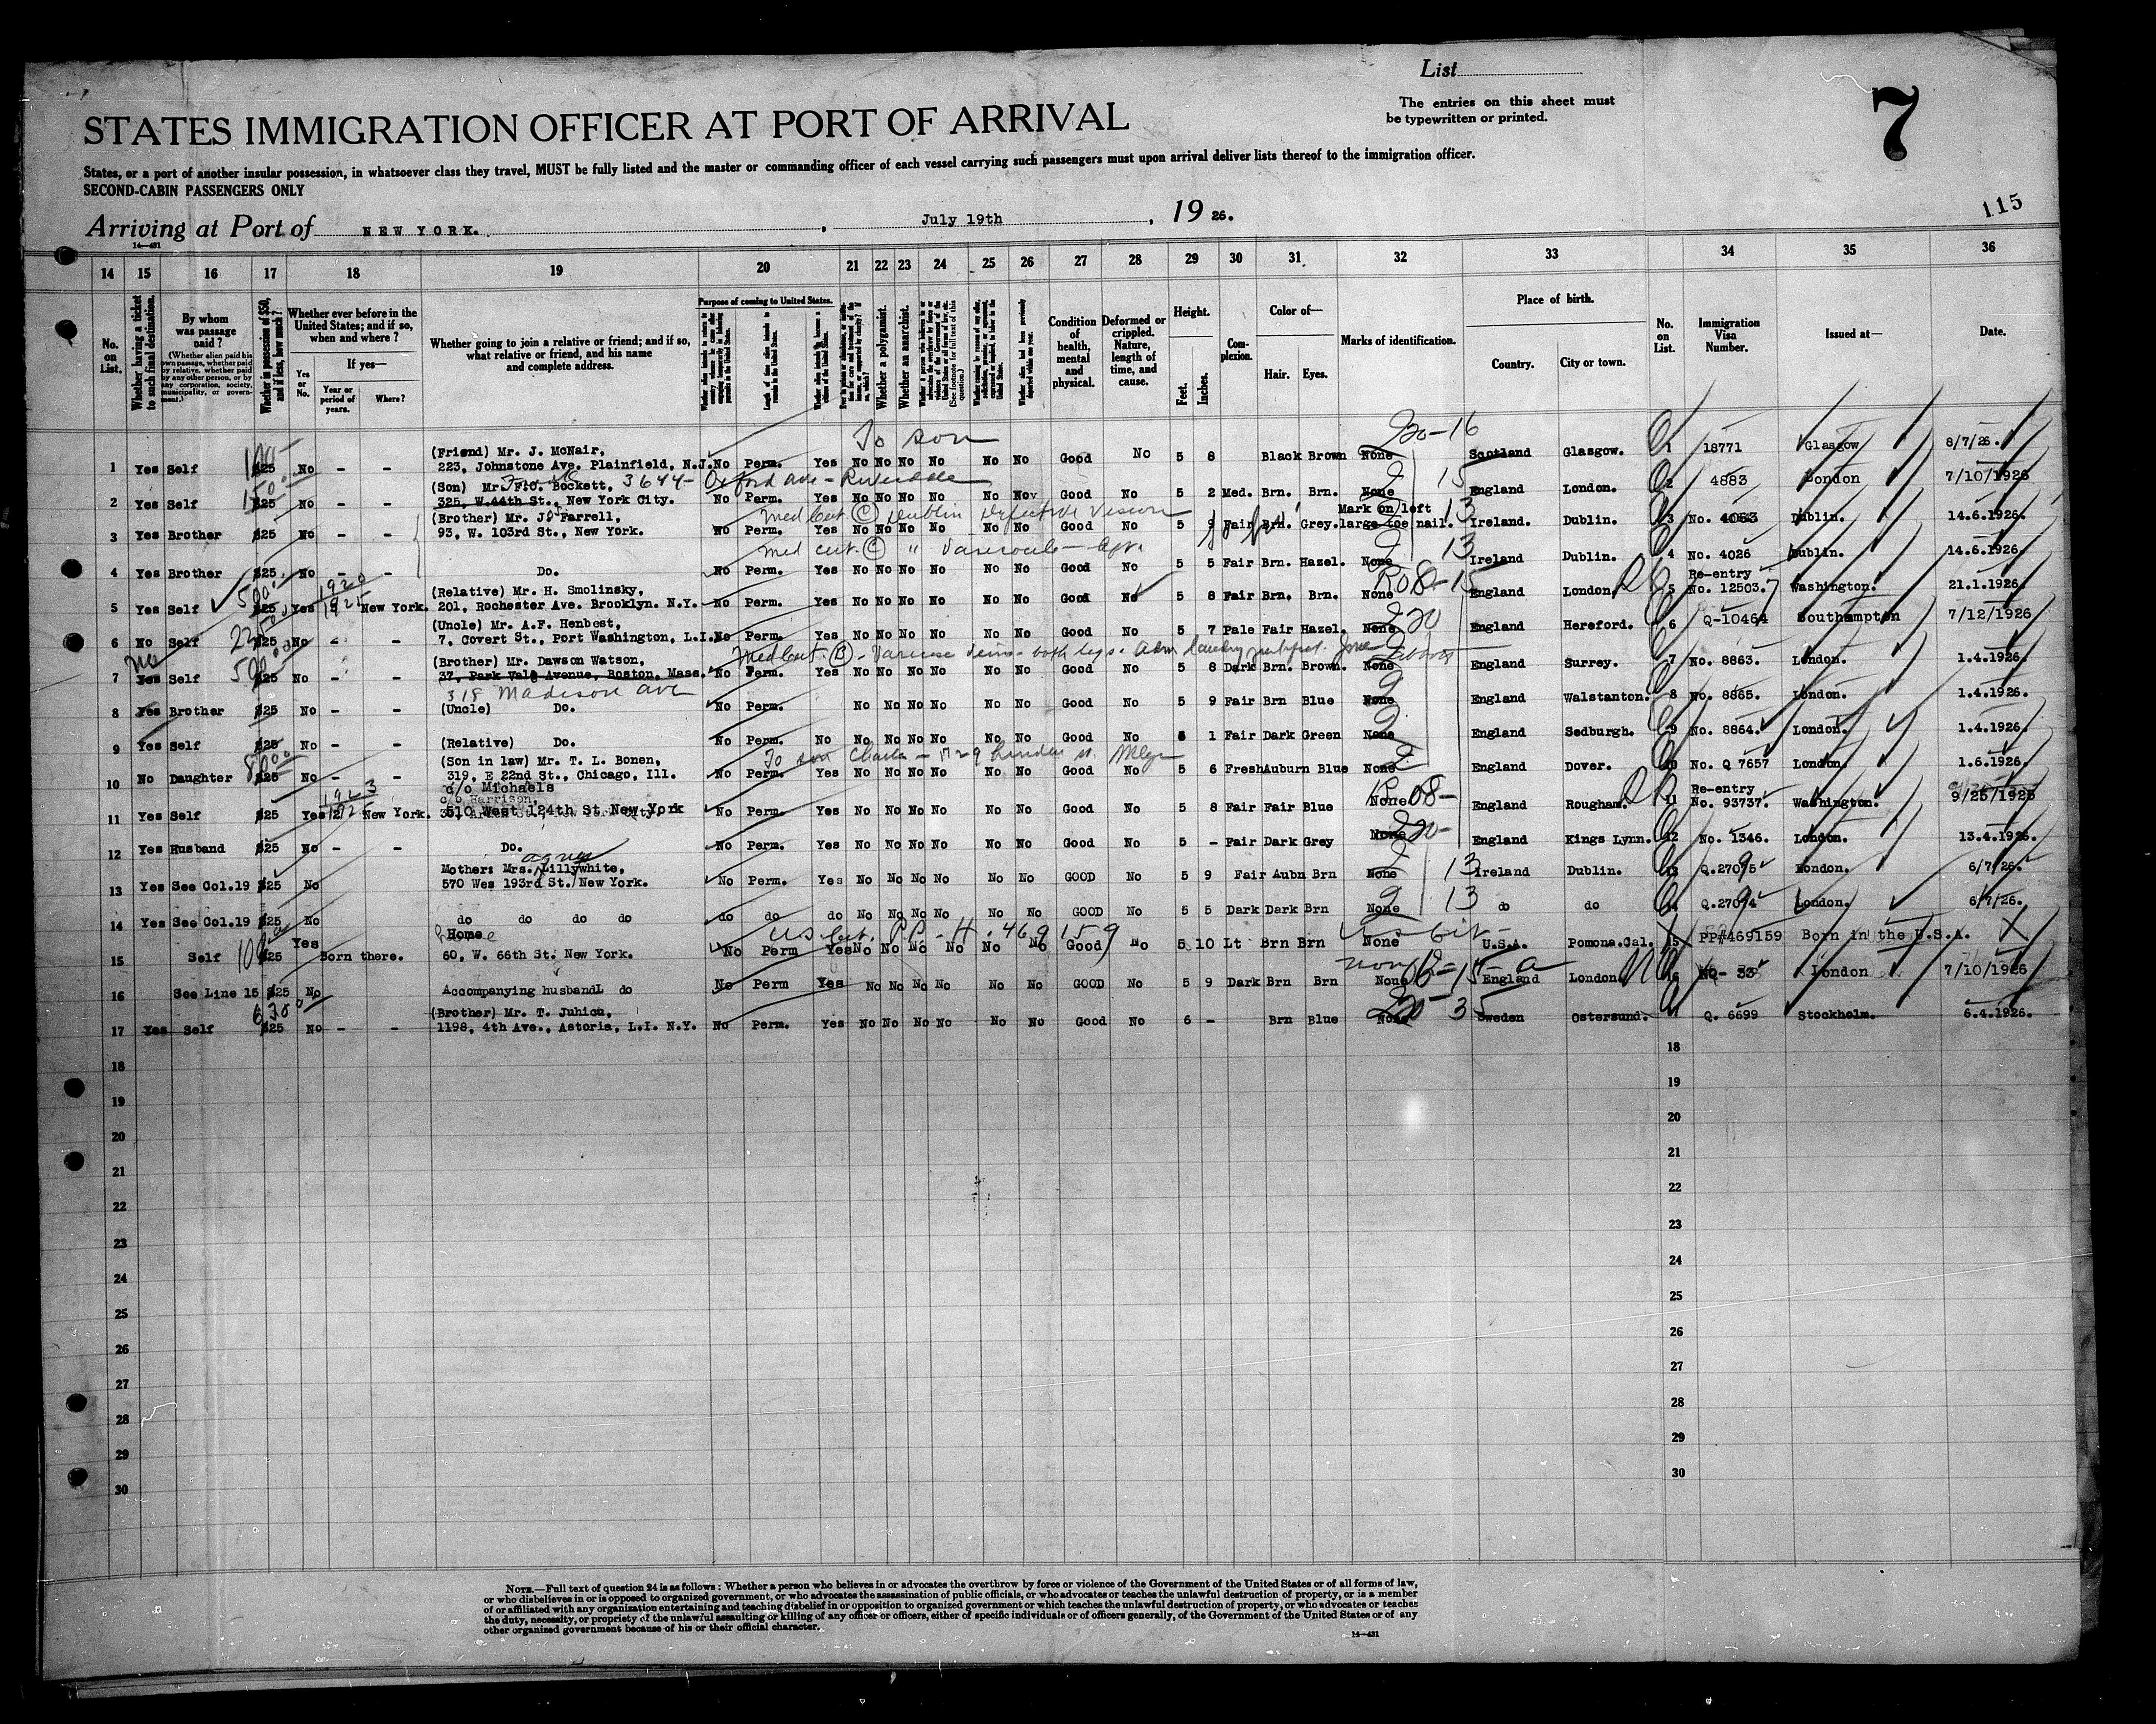 List
The entries on this sheet must
be typewritten or printed.
7
STATES IMMIGRATION OFFICER AT PORT OF ARRIVAL
States, or a port of another insular possession, in whatsoever class they travel, MUST be fully listed and the master or commanding officer of each vessel carrying such passengers must upon arrival deliver lists thereof to the immigration officer.
SECOND-CABIN PASSENGERS ONLY
115
Arriving at Port of NEW YORK. , July 19th , 19 26.
14—431
14 15 16 17 18 19 20 21 22 23 24 25 26 27 28 29 30 31 32 33 34 35 36
No. on List.
Whether having a ticket to such final destination.
By whom was passage paid?
(Whether alien paid his own passage, whether paid by relative, whether paid by any other person, or by any corporation, society, municipality, or government.)
Whether in possession of $50, and if less, how much?
Whether ever before in the United States; and if so, when and where?
If yes—
Yes or No.
Year or period of years.
Where?
Whether going to join a relative or friend; and if so, what relative or friend, and his name and complete address.
Purpose of coming to United States.
Length of time alien intends to remain in the United States.
Whether a polygamist.
Whether an anarchist.
Condition of health, mental and physical.
Deformed or crippled. Nature, length of time, and cause.
Height.
Feet. Inches.
Complexion.
Color of—
Hair. Eyes.
Marks of identification.
Place of birth.
Country. City or town.
No. on List.
Immigration Visa Number.
Issued at—
Date.
To son
(Friend) Mr. J. McNair,
1 Yes Self 100 $25 No - - 223, Johnstone Ave. Plainfield, N.J. No Perm. Yes No No No No No No Good No 5 8 Black Brown None Scotland Glasgow. 1 18771 Glasgow 8/7/26.
(Son) Mr. F.G. Bockett, 3644- Oxford ave - Riverdale
2 Yes Self 150 $25 No - - 325, W.44th St., New York City. No Perm. Yes No No No No No No Good No 5 2 Med. Brn. Brn. None 15 England London. 2 4883 London 7/10/1926
(Brother) Mr. J. Farrell, Med Cert (C) Dublin Defective Vision
Mark on left
3 Yes Brother $25 No - - 93, W. 103rd St., New York. No Perm. Yes No No No No No No Good No 5 9 Fair Brn. Grey. large toe nail. 13 Ireland. Dublin. 3 No. 4083 Dublin. 14.6.1926.
med cert. (C) " Varicocele
4 Yes Brother $25. No - - Do. No Perm. Yes No No No No No No Good No 5 5 Fair Brn. Hazel. None 13 Ireland Dublin. 4 No. 4026 Dublin. 14.6.1926.
(Relative) Mr. H. Smolinsky, Re-entry
5 Yes Self 500 $25 Yes 1920 1925 New York. 201, Rochester Ave. Brooklyn. N.Y. No Perm. Yes No No No No No No Good No 5 8 Fair Brn. Brn. None R08-15 England London 5 No. 12503. Washington. 21.1.1926.
(Uncle) Mr. A.F. Henbest,
6 No Self 225 $25 No - - 7, Covert St., Port Washington, L.I. No Perm. Yes No No No No No No Good No 5 7 Pale Fair Hazel. None England Hereford. 6 Q-10464 Southampton 7/12/1926
(Brother) Mr. Dawson Watson, Med Cert (B) - Varicose Veins - both legs.
7 No Yes Self 500 $25 No - - 37, Park Vale Avenue, Boston, Mass. No Perm. Yes No No No No No No Good No 5 8 Dark Brn. Brown. None England Surrey. 7 No. 8863. London. 1.4.1926.
318 Madison ave
8 Yes Brother $25 No - - (Uncle) Do. No Perm. No No No No No No Good No 5 9 Fair Brn Blue None England Walstanton. 8 No. 8865. London. 1.4.1926.
9 Yes Self $25 No - - (Relative) Do. No Perm. No No No No No No No Good No 5 1 Fair Dark Green None England Sedburgh. 9 No. 8864. London. 1.4.1926.
(Son in law) Mr. T. L. Bonen, To son Charles - 1729 Linden st.
10 No Daughter 80 $25 No - - 319, E 22nd St., Chicago, Ill. No Perm. Yes No No No No No No Good No 5 6 Fresh Auburn Blue None England Dover. 10 No. Q 7657 London. 1.6.1926.
c/o Michaels Re-entry
c/o Harrison,
11 Yes Self $25 Yes 1923 1925 New York. 510 West 124th St. New York No Perm. Yes No No No No No No Good No 5 8 Fair Fair Blue None R08- England Rougham. 11 No. 93737. Washington. 9/25/1925
12 Yes Husband $25 No - - Do. No Perm. Yes No No No No No No Good No 5 - Fair Dark Grey None England Kings Lynn. 12 No. 1346. London. 13.4.1926.
Mother: Mrs. Agnes Lillywhite,
13 Yes See Col.19 $25 No 570 Wes 193rd St. New York. No Perm. Yes No No No No No No GOOD No 5 9 Fair Aubn Brn None 13 Ireland Dublin. 13 Q.27095 London. 6/7/26.
14 Yes See Col.19 $25 No do do do do do do do No No No No No No GOOD No 5 5 Dark Dark Brn None 13 do do 14 Q.27094 London. 6/7/26.
Home U S Cert. PP - H. 469159
15 Self 100 $25 Yes Born there. 60, W. 66th St. New York. No Perm Yes No No No No No No Good No 5 10 Lt Brn Brn None US Cit - U.S.A. Pomona.Cal. 15 PP#469159 Born in the U.S.A. X
16 See Line 15 $25 No Accompanying husband do No Perm Yes No No No No No No GOOD No 5 9 Dark Brn Brn None England London 16 NQ- 33 London 7/10/1926
(Brother) Mr. T. Juhion,
17 Yes Self 630 $25 No - - 1198, 4th Ave., Astoria, L.I. N.Y. No Perm. Yes No No No No No No Good No 6 - Brn Blue None 35 Sweden Ostersund. Q. 6699 Stockholm. 6.4.1926.
18 18
19 19
20 20
21 21
22 22
23 23
24 24
25 25
26 26
27 27
28 28
29 29
30 30
NOTE.—Full text of question 24 is as follows: Whether a person who believes in or advocates the overthrow by force or violence of the Government of the United States or of all forms of law,
or who disbelieves in or is opposed to organized government, or who advocates the assassination of public officials, or who advocates or teaches the unlawful destruction of property, or is a member
of or affiliated with any organization entertaining and teaching disbelief in or opposition to organized government or which teaches the unlawful destruction of property, or who advocates or teaches
the duty, necessity, or propriety of the unlawful assaulting or killing of any officer or officers, either of specific individuals or of officers generally, of the Government of the United States or of any
other organized government because of his or their official character.
14—431